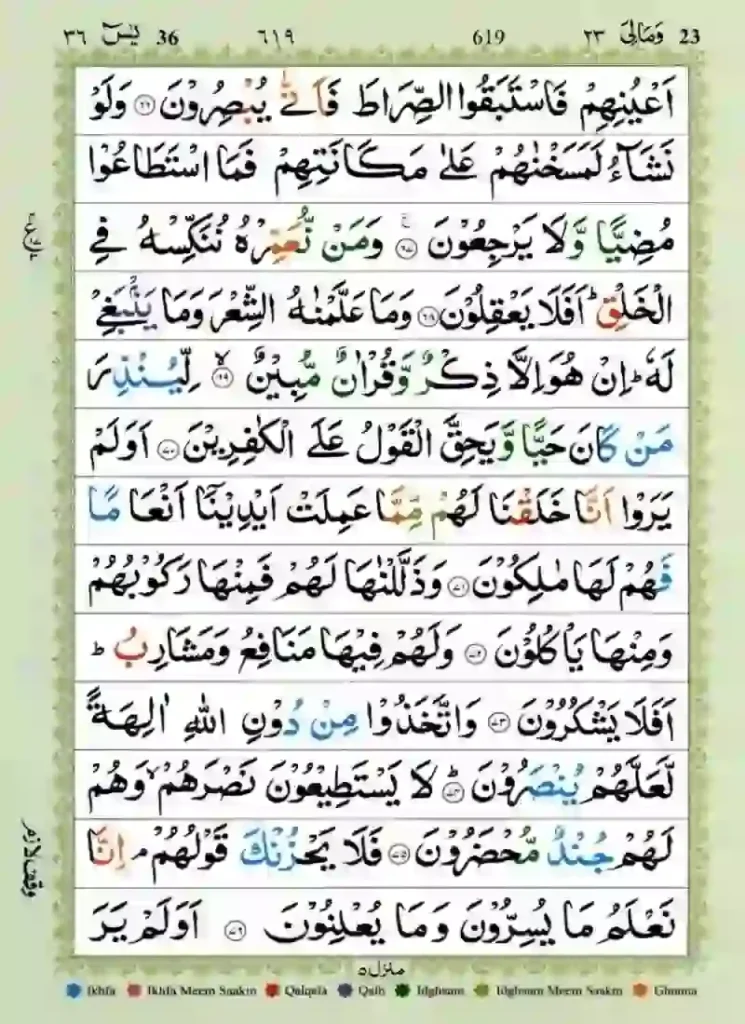 ٣٦ یٰسٓ 36 ٦١٩ 619 ٢٣ وَمَالِیَ 23
اَعْیُنِهِمْ فَاسْتَبَقُوا الصِّرَاطَ فَاَنّٰی یُبْصِرُوْنَ ﴿٦٦﴾ وَلَوْ
نَشَآءُ لَمَسَخْنٰهُمْ عَلٰی مَكَانَتِهِمْ فَمَا اسْتَطَاعُوْا
مُضِیًّا وَّلَا یَرْجِعُوْنَ ﴿٦٧﴾ وَمَنْ نُّعَمِّرْهُ نُنَكِّسْهُ فِی
الْخَلْقِ ؕ اَفَلَا یَعْقِلُوْنَ ﴿٦٨﴾ وَمَا عَلَّمْنٰهُ الشِّعْرَ وَمَا یَنْۢبَغِیْ
لَهٗ ؕ اِنْ هُوَ اِلَّا ذِكْرٌ وَّقُرْاٰنٌ مُّبِیْنٌ ﴿٦٩﴾ لِّیُنْذِرَ
مَنْ كَانَ حَیًّا وَّیَحِقَّ الْقَوْلُ عَلَی الْكٰفِرِیْنَ ﴿٧٠﴾ اَوَلَمْ
یَرَوْا اَنَّا خَلَقْنَا لَهُمْ مِّمَّا عَمِلَتْ اَیْدِیْنَاۤ اَنْعَامًا
فَهُمْ لَهَا مٰلِكُوْنَ ﴿٧١﴾ وَذَلَّلْنٰهَا لَهُمْ فَمِنْهَا رَكُوْبُهُمْ
وَمِنْهَا یَاْكُلُوْنَ ﴿٧٢﴾ وَلَهُمْ فِیْهَا مَنَافِعُ وَمَشَارِبُ ؕ
اَفَلَا یَشْكُرُوْنَ ﴿٧٣﴾ وَاتَّخَذُوْا مِنْ دُوْنِ اللّٰهِ اٰلِهَةً
لَّعَلَّهُمْ یُنْصَرُوْنَ ﴿٧٤﴾ لَا یَسْتَطِیْعُوْنَ نَصْرَهُمْ ۙ وَهُمْ
لَهُمْ جُنْدٌ مُّحْضَرُوْنَ ﴿٧٥﴾ فَلَا یَحْزُنْكَ قَوْلُهُمْ ۘ اِنَّا
نَعْلَمُ مَا یُسِرُّوْنَ وَمَا یُعْلِنُوْنَ ﴿٧٦﴾ اَوَلَمْ یَرَ
وقف لازم
منزل ٥
Ikhfa Ikhfa Meem Saakin Qalqala Qalb Idghaam Idghaam Meem Saakin Ghunna